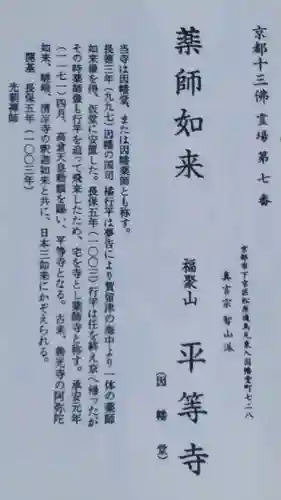 京都十三佛霊場第七番
薬師如来
京都市下京区松原通烏丸東入因幡堂町七二八
真言宗智山派
福聚山 平等寺
（因幡堂）
当寺は因幡堂、または因幡薬師とも称す。
長徳三年（九九七）因幡の国司橘行平は夢告により賀留津の海中より一体の薬師
如来像を得、仮堂に安置した。長保五年（一〇〇三）行平は任を終え京へ帰ったが
その時薬師像も行平を追って飛来したため、宅を寺とし薬師寺と称す。承安元年
（一一七一）四月、高倉天皇勅額を賜い、平等寺となる。古来、善光寺の阿弥陀
如来、嵯峨、清凉寺の釈迦如来と共に、日本三如来にかぞえられる。
開基 長保五年（一〇〇三年）
光朝禅師